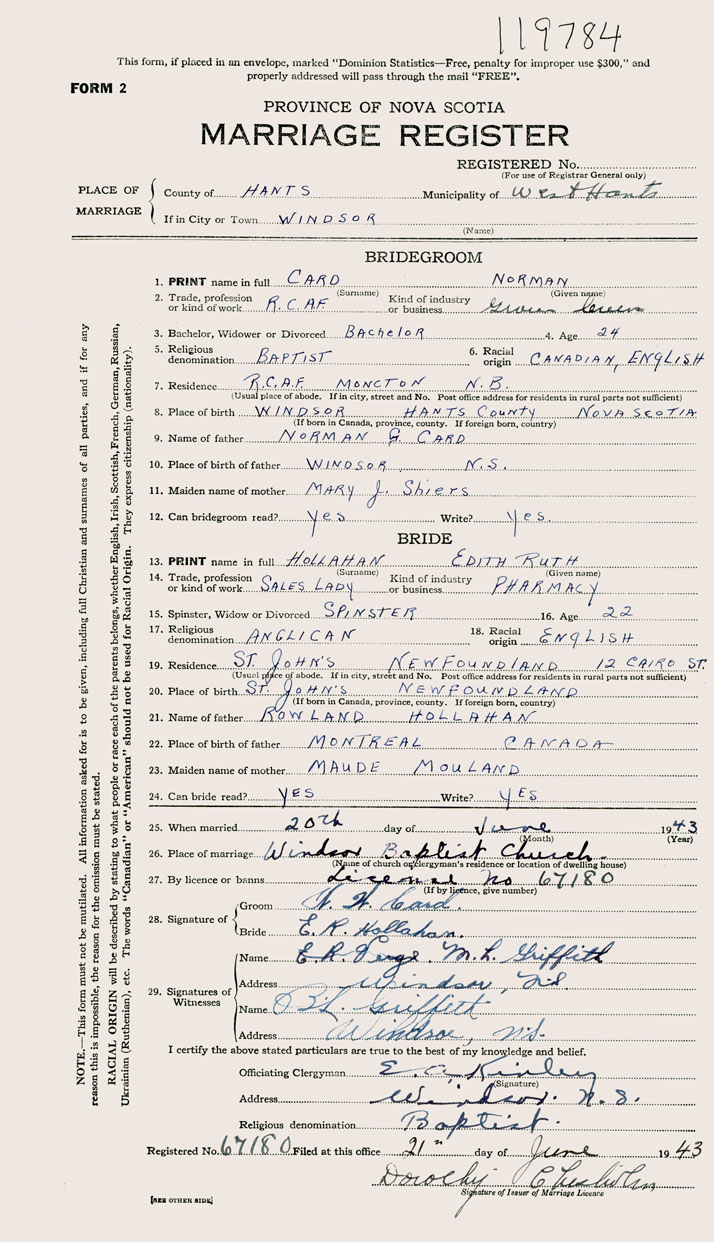 119784
This form, if placed in an envelope, marked “Dominion Statistics—Free, penalty for improper use $300,” and
properly addressed will pass through the mail “FREE”.
FORM 2
PROVINCE OF NOVA SCOTIA
MARRIAGE REGISTER
REGISTERED No.
(For use of Registrar General only)
PLACE OF MARRIAGE
County of HANTS Municipality of West Hants
If in City or Town WINDSOR
(Name)
BRIDEGROOM
1. PRINT name in full CARD NORMAN
(Surname) (Given name)
2. Trade, profession or kind of work R.C.A.F. Kind of industry or business
3. Bachelor, Widower or Divorced BACHELOR 4. Age 24
5. Religious denomination BAPTIST 6. Racial origin CANADIAN, ENGLISH
7. Residence R.C.A.F. MONCTON N.B.
(Usual place of abode. If in city, street and No. Post office address for residents in rural parts not sufficient)
8. Place of birth WINDSOR HANTS COUNTY NOVA SCOTIA
(If born in Canada, province, county. If foreign born, country)
9. Name of father NORMAN G CARD
10. Place of birth of father WINDSOR, N.S.
11. Maiden name of mother MARY J. Shiers
12. Can bridegroom read? yes Write? yes.
BRIDE
13. PRINT name in full HOLLAHAN EDITH RUTH
(Surname) (Given name)
14. Trade, profession or kind of work SALES LADY Kind of industry or business PHARMACY
15. Spinster, Widow or Divorced SPINSTER 16. Age 22
17. Religious denomination ANGLICAN 18. Racial origin ENGLISH
19. Residence ST. JOHN'S NEWFOUNDLAND 12 CAIRO ST.
(Usual place of abode. If in city, street and No. Post office address for residents in rural parts not sufficient)
20. Place of birth ST. JOHN'S NEWFOUNDLAND
(If born in Canada, province, county. If foreign born, country)
21. Name of father ROWLAND HOLLAHAN
22. Place of birth of father MONTREAL CANADA
23. Maiden name of mother MAUDE MOULAND
24. Can bride read? YES Write? YES
25. When married 20th day of June 1943
(Month) (Year)
26. Place of marriage Windsor Baptist Church.
(Name of church or clergyman's residence or location of dwelling house)
27. By licence or banns License No 67180
(If by licence, give number)
28. Signature of
Groom N. W. Card.
Bride E. R. Hollahan.
29. Signatures of Witnesses
Name M. L. Griffith
Address Windsor, N.S.
Name Griffith
Address Windsor, N.S.
I certify the above stated particulars are true to the best of my knowledge and belief.
Officiating Clergyman E. A. Kinley
(Signature)
Address Windsor. N.S.
Religious denomination Baptist.
Registered No. 67180 Filed at this office 21st day of June 1943
Dorothy Chisholm
Signature of Issuer of Marriage Licence
[SEE OTHER SIDE]
NOTE.—This form must not be mutilated. All information asked for is to be given, including full Christian and surnames of all parties, and if for any
reason this is impossible, the reason for the omission must be stated.
RACIAL ORIGIN will be described by stating to what people or race each of the parents belongs, whether English, Irish, Scottish, French, German, Russian,
Ukrainian (Ruthenian), etc. The words “Canadian” or “American” should not be used for Racial Origin. They express citizenship (nationality).